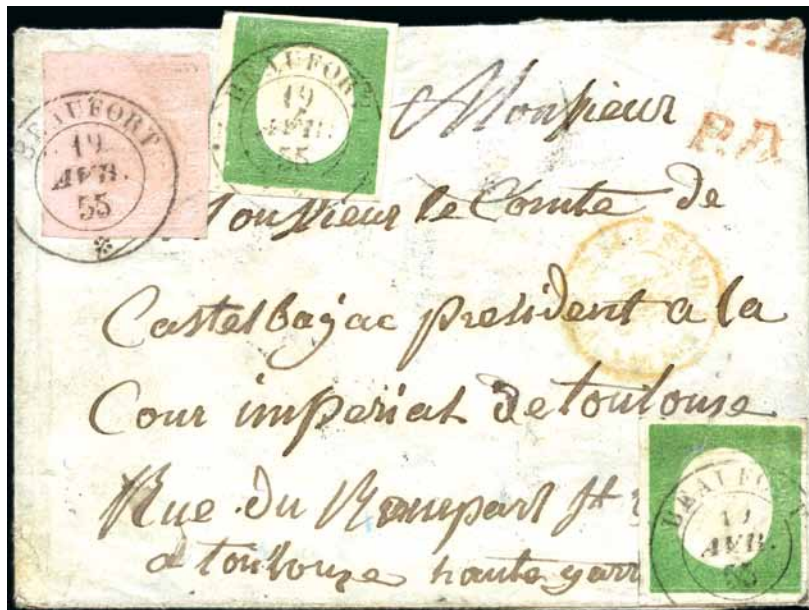 P.D.
BEAUFORT
19
AVR.
55
BEAUFORT
19
AVR.
55
Monsieur
P.D.
Monsieur le Comte de
Castelbajac president a la
Cour imperial de toulouse
Rue du Rempart St
a toulouse haute garr
BEAUFORT
19
AVR.
55